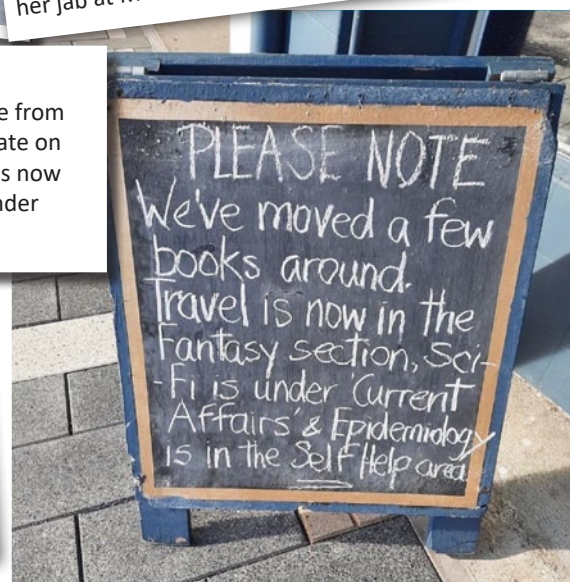 her jab at
e from
ate on
s now
nder
PLEASE NOTE
We've moved a few
books around.
Travel is now in the
Fantasy section, Sci-
-Fi is under 'Current
Affairs' & Epidemiology
is in the Self Help area